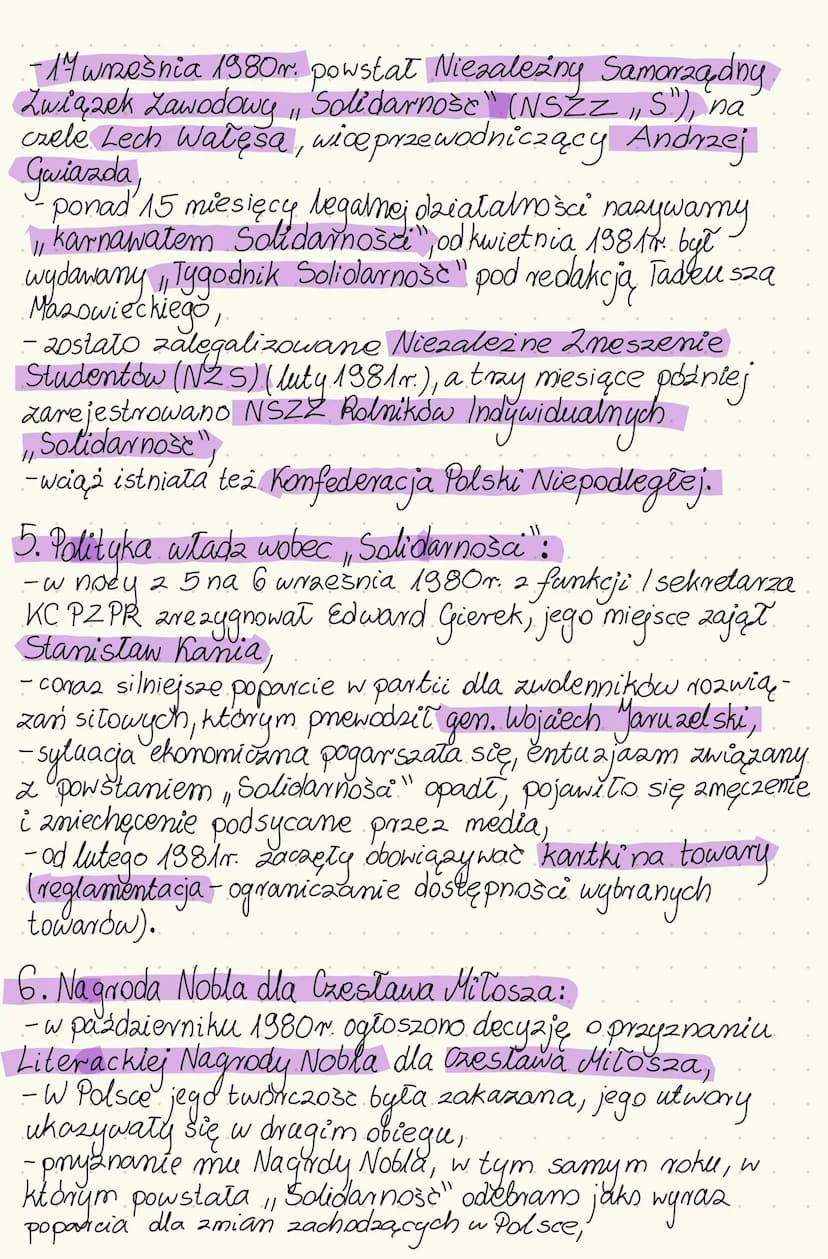 - 17 września 1980r. powstał Niezależny Samorządny
Związek Zawodowy „Solidarność" (NSZZ „S"), na
czele Lech Wałęsa, wiceprzewodniczący Andrzej
Gwiazda,
- ponad 15 miesięcy legalnej działalności nazywamy
„karnawałem Solidarności", od kwietnia 1981r. był
wydawany „Tygodnik Solidarność" pod redakcją Tadeusza
Mazowieckiego,
- zostało zalegalizowane Niezależne Zrzeszenie
Studentów (NZS) (luty 1981r.), a trzy miesiące później
zarejestrowano NSZZ Rolników Indywidualnych
„Solidarność",
- wciąż istniała też Konfederacja Polski Niepodległej.
5. Polityka władz wobec „Solidarności":
- w nocy z 5 na 6 września 1980r. z funkcji I sekretarza
KC PZPR zrezygnował Edward Gierek, jego miejsce zajął
Stanisław Kania,
- coraz silniejsze poparcie w partii dla zwolenników rozwią-
zań siłowych, którym przewodził gen. Wojciech Jaruzelski,
- sytuacja ekonomiczna pogarszała się, entuzjazm związany
z powstaniem „Solidarności" opadł, pojawiło się zmęczenie
i zniechęcenie podsycane przez media,
- od lutego 1981r. zaczęły obowiązywać kartki na towary
(reglamentacja - ograniczanie dostępności wybranych
towarów).
6. Nagroda Nobla dla Czesława Miłosza:
- w październiku 1980r. ogłoszono decyzję o przyznaniu
Literackiej Nagrody Nobla dla Czesława Miłosza,
- W Polsce jego twórczość była zakazana, jego utwory
ukazywały się w drugim obiegu,
- przyznanie mu Nagrody Nobla, w tym samym roku, w
którym powstała „Solidarność" odebrano jako wyraz
poparcia dla zmian zachodzących w Polsce,